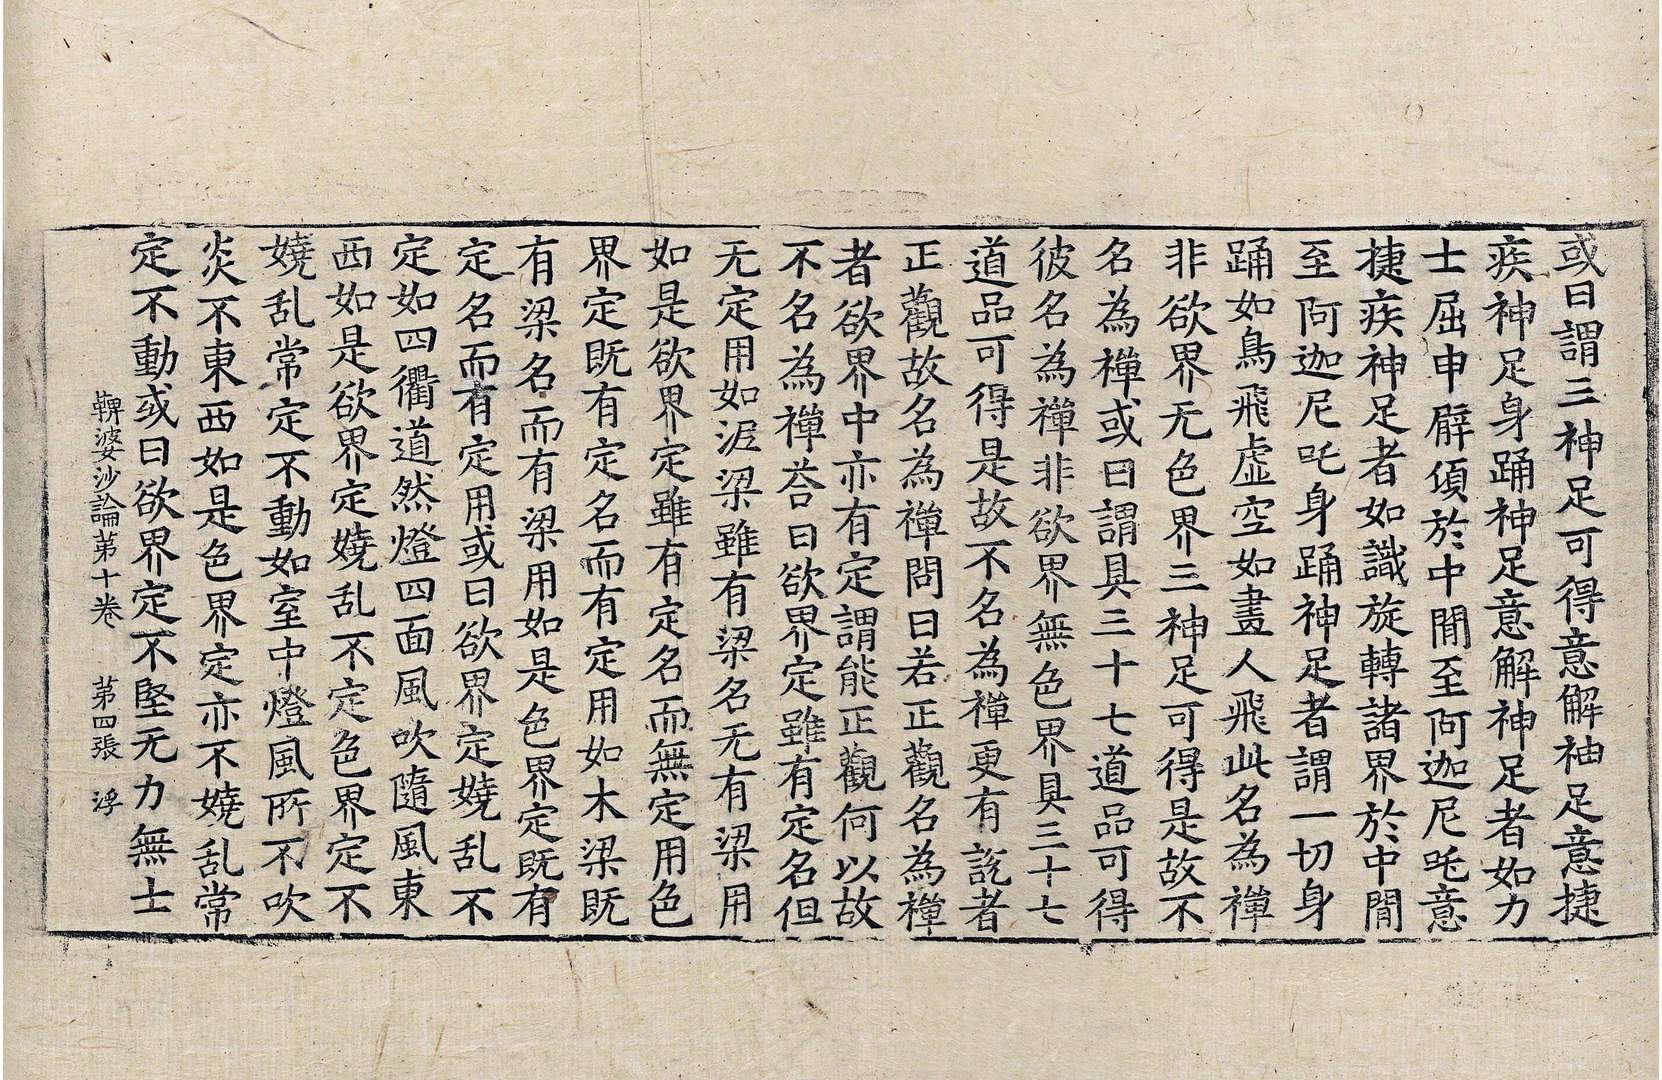 或曰謂三神足可得意解神足意捷
疾神足身踊神足意解神足者如力
士屈申臂傾於中間至阿迦尼吒意
捷疾神足者如識旋轉諸界於中間
至阿迦尼吒身踊神足者謂一切身
踊如鳥飛虛空如畫人飛此名為禪
非欲界无色界三神足可得是故不
名為禪或曰謂具三十七道品可得
彼名為禪非欲界無色界具三十七
道品可得是故不名為禪更有說者
正觀故名為禪問曰若正觀名為禪
者欲界中亦有定謂能正觀何以故
不名為禪荅曰欲界定雖有定名但
无定用如泥梁雖有梁名无有梁用
如是欲界定雖有定名而無定用色
界定既有定名而有定用如木梁既
有梁名而有梁用如是色界定既有
定名而有定用或曰欲界定嬈乱不
定如四衢道然燈四面風吹隨風東
西如是欲界定嬈乱不定色界定不
嬈乱常定不動如室中燈風所不吹
炎不東西如是色界定亦不嬈乱常
定不動或曰欲界定不堅无力無士
鞞婆沙論第十卷　第四張　浮